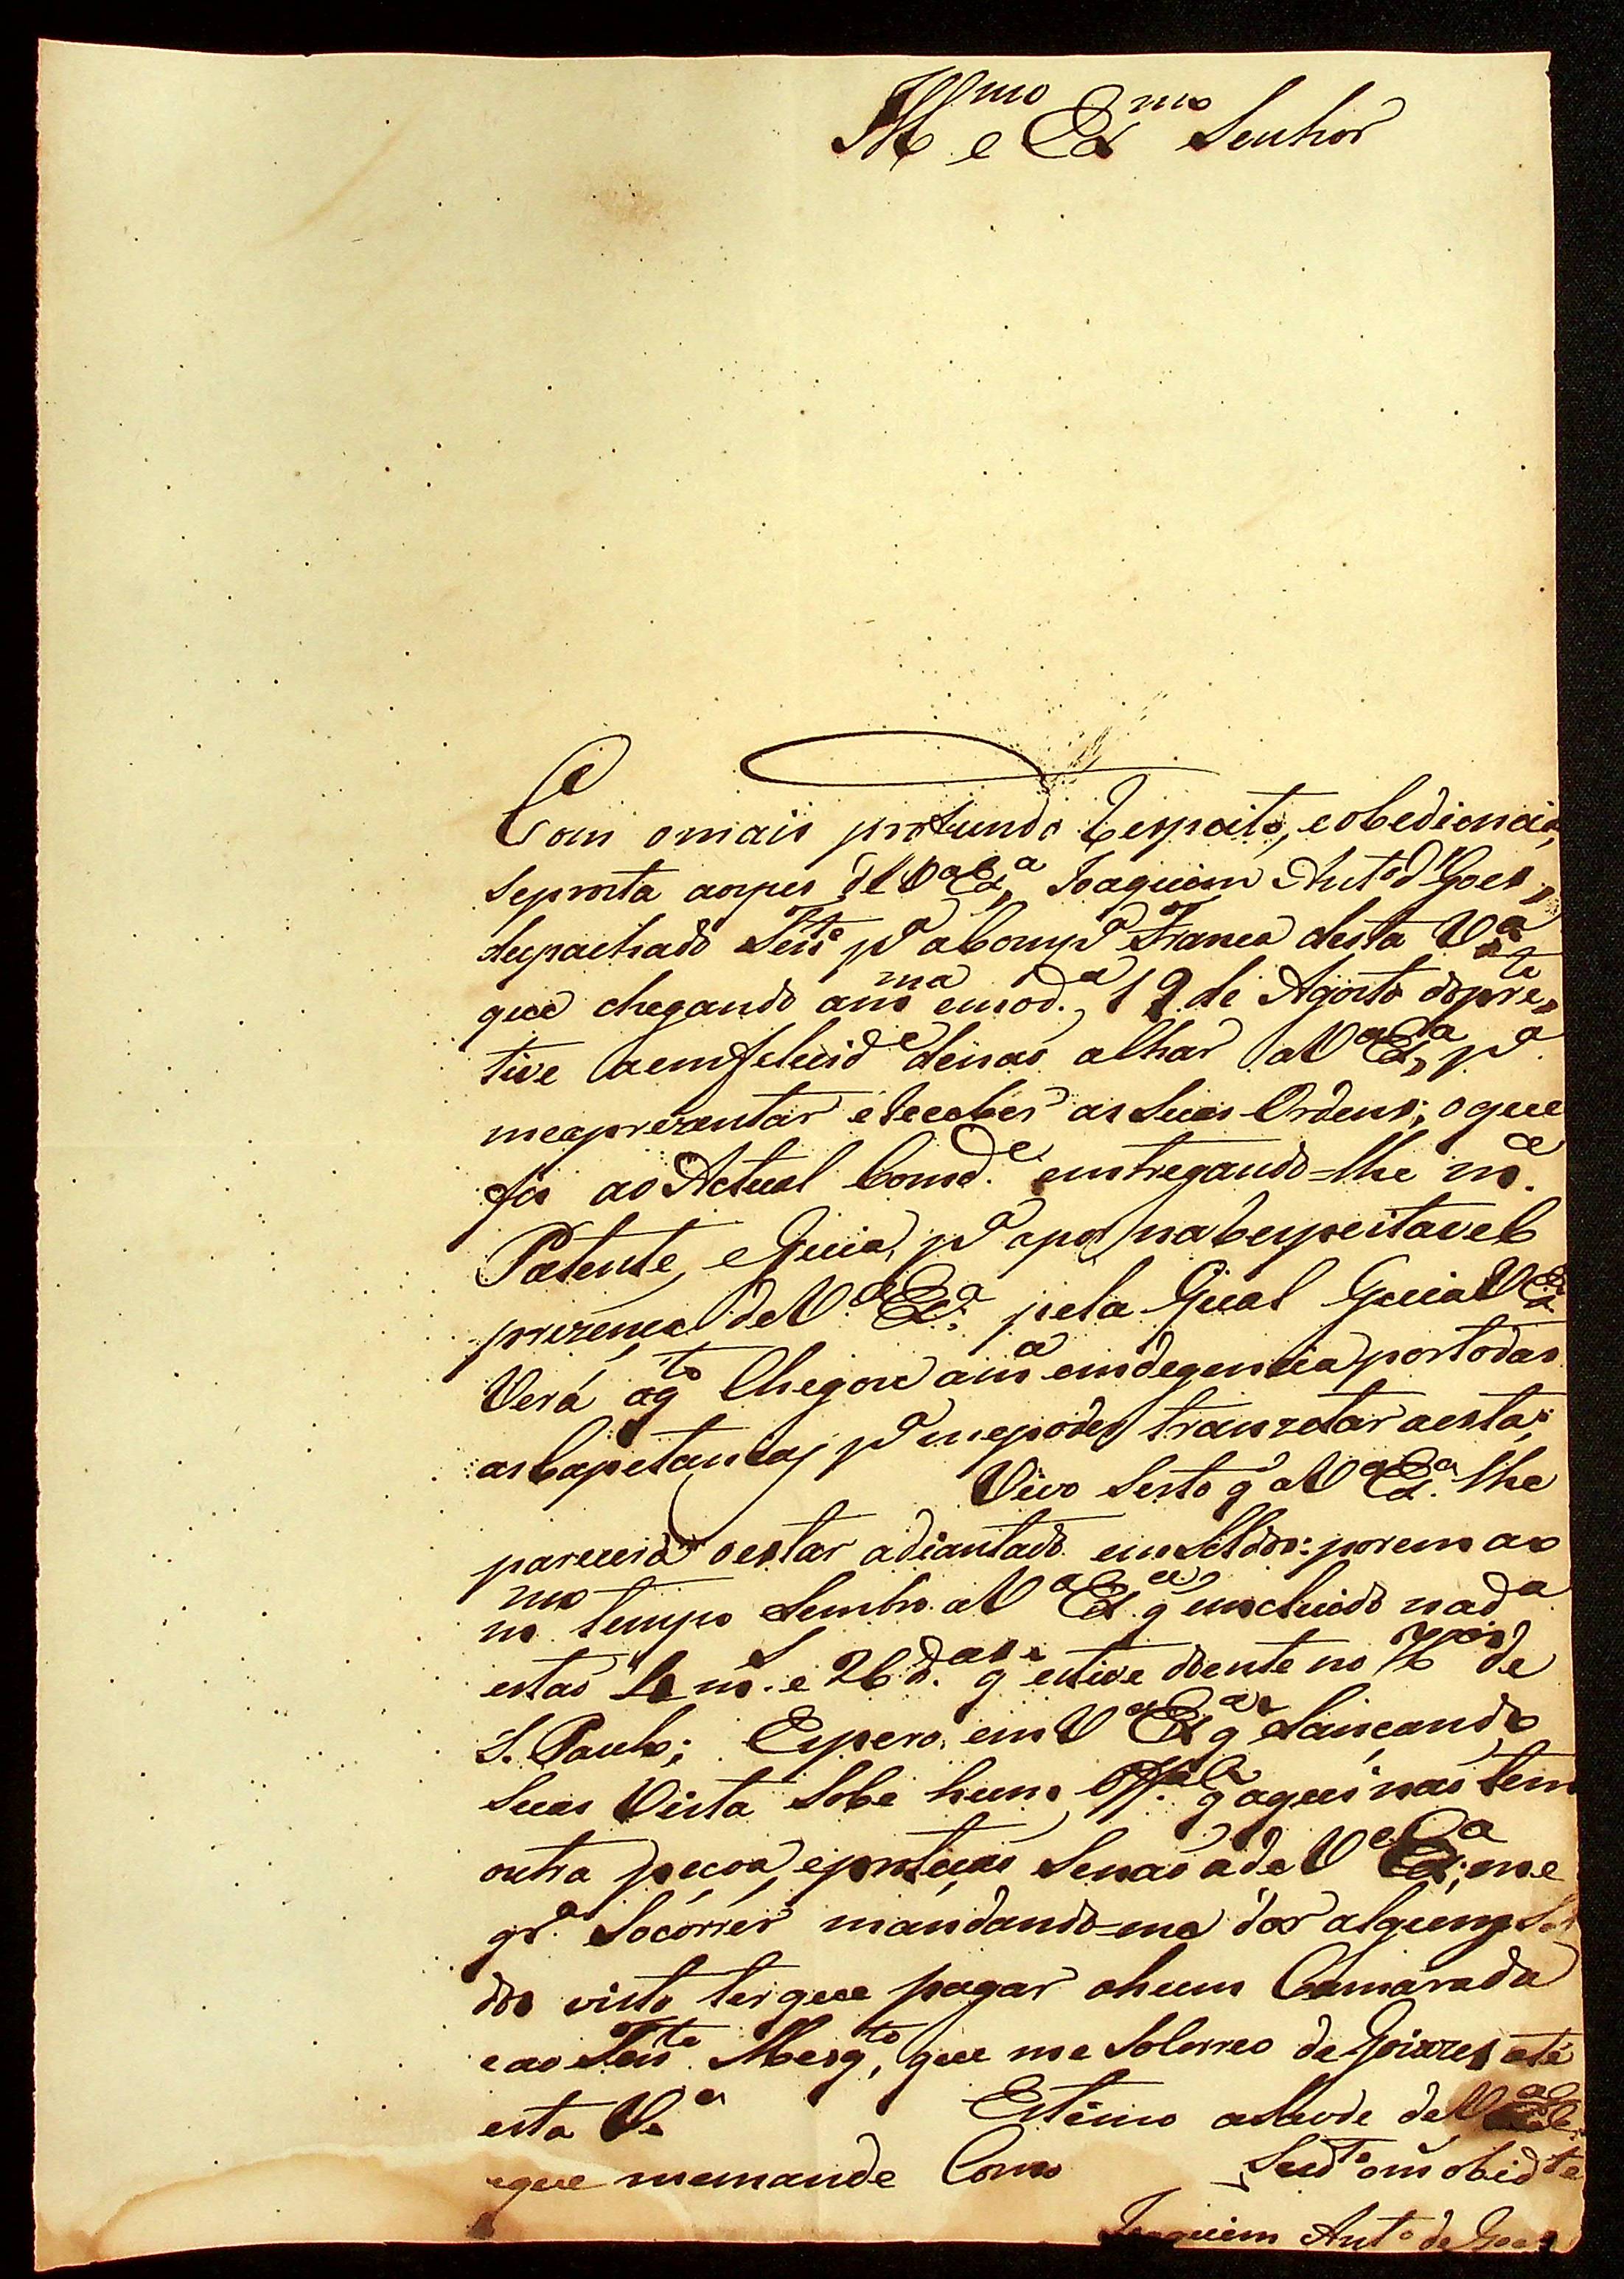 Ill.mo e Ex.mo Senhor
Com omais profundo Respeito, eobediencia,
seprosta aospes de V.a Ex.a, Joaquim Ant.o d' Goes,
despachado Ten.te p.a aComp.a Franca desta V.a
que chegando am.ma em od.a 12 de Agosto dopre.te
tive aemfelicid.e denaõ alhar aV.a Ex.a, p.a
meaprezentar eReceber as Suas Ordens; oque
fis ao Actual Com.de emtregando-lhe m.a
Patente, eGuia, p.a apor naRespeitavel
prezença deV.a Ex.a pela Gual Guia V.Ex.a
Verá aq.to Chegou am.a emdegencia portodas
as p.a mepoder tranzetar aesta;
Vivo Serto q' aV.a Ex.a lhe
parecerá oestar adiantado emSoldos: porem ao
m.mo tempo Lembro aV.a Ex.a q' emcluido nad.a
estaõ m. e 26 d.as q' estive doente no H.al de
S. Paulo; Espero, emV.a Ex.a q' Lançando
Suas Vista Sobe hum Off.al q' aqui naõ tem
outra peçoa, eproteçaõ Senaõ ade V.a Ex.a; me
q.r Socorrer mandando-me dar algums Sol
dos visto terque pagar ahum Camarada
eao Ten.te Mesq.ta, que me Solorreo de Goiazes até
esta V.a Estimo aSaude deV.a Ex.a
eque memande Como Sud.to om obid.te
Joaquim Ant.o de Goes